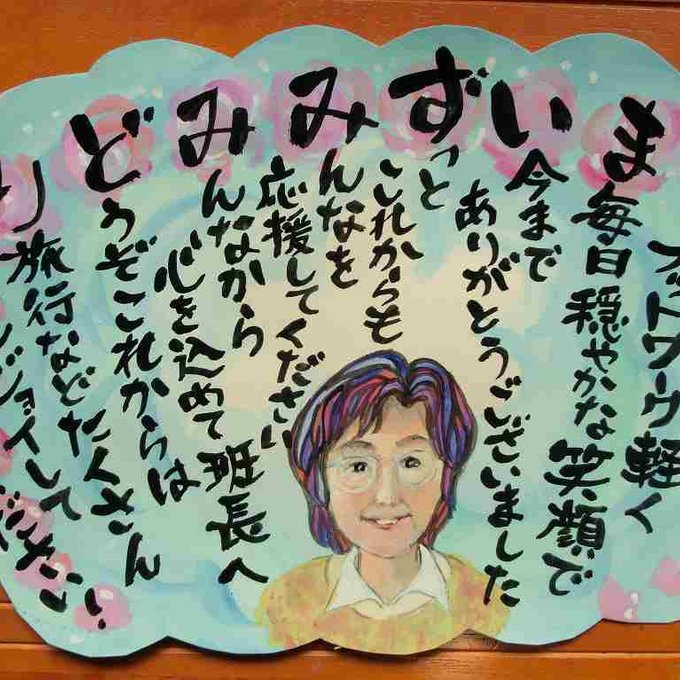 フットワーク軽く
ま毎日穏やかな笑顔で
い今まで
ありがとうございました
ずっと
これからも
みんなを
応援してください
みんなから
心を込めて班長へ
どうぞこれからは
り旅行などたくさん
ンジョイして
ださい!